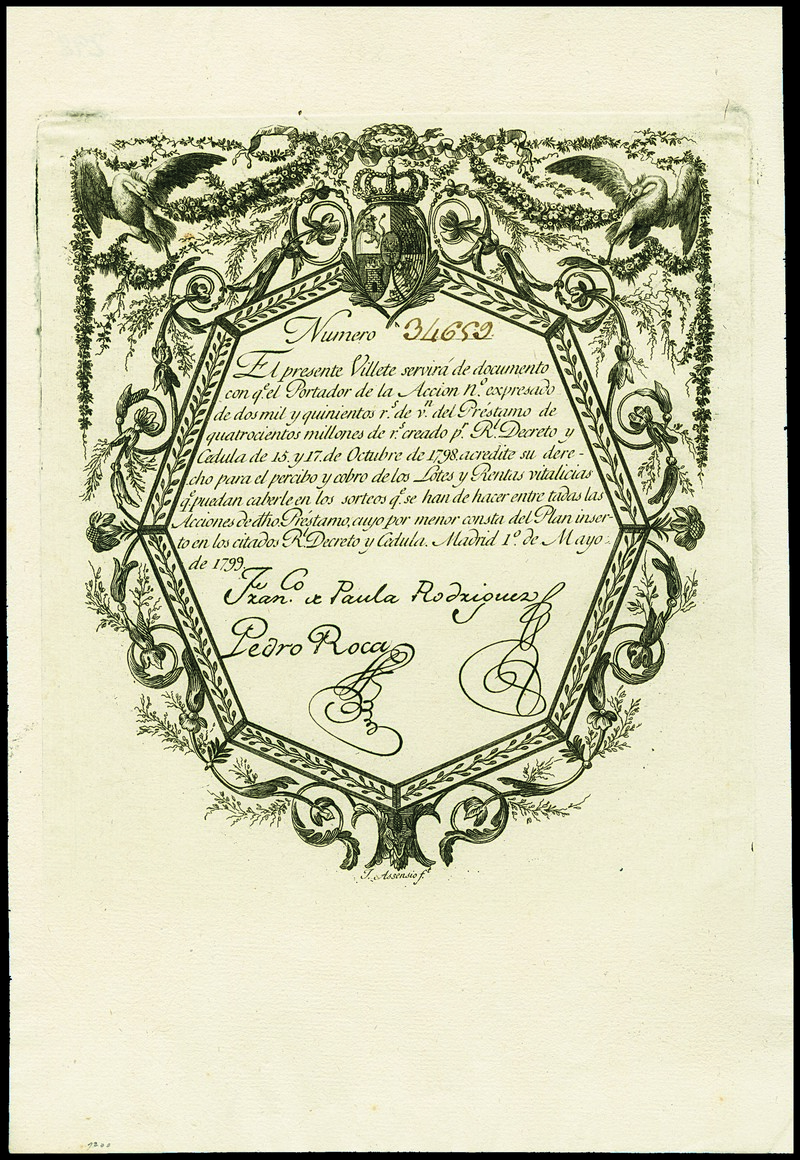 Numero 34659
El presente Villete servirá de documento
con q.e el Portador de la Accion N.o expresado
de dos mil y quinientos r.s de v.n del Préstamo de
quatrocientos millones de r.s creado p.r R.l Decreto y
Cedula de 15. y 17. de Octubre de 1798. acredite su dere-
cho para el percibo y cobro de los Lótes y Rentas vitalicias
q.e puedan caberle en los sorteos q.e se han de hacer entre tadas las
Acciones de dho Préstamo, cuyo por menor consta del Plan inser-
to en los citados R.l Decreto y Cedula. Madrid 1.o de Mayo
de 1799.
Fran.co de Paula Rodriguez
Pedro Roca
J. Assensio f.t